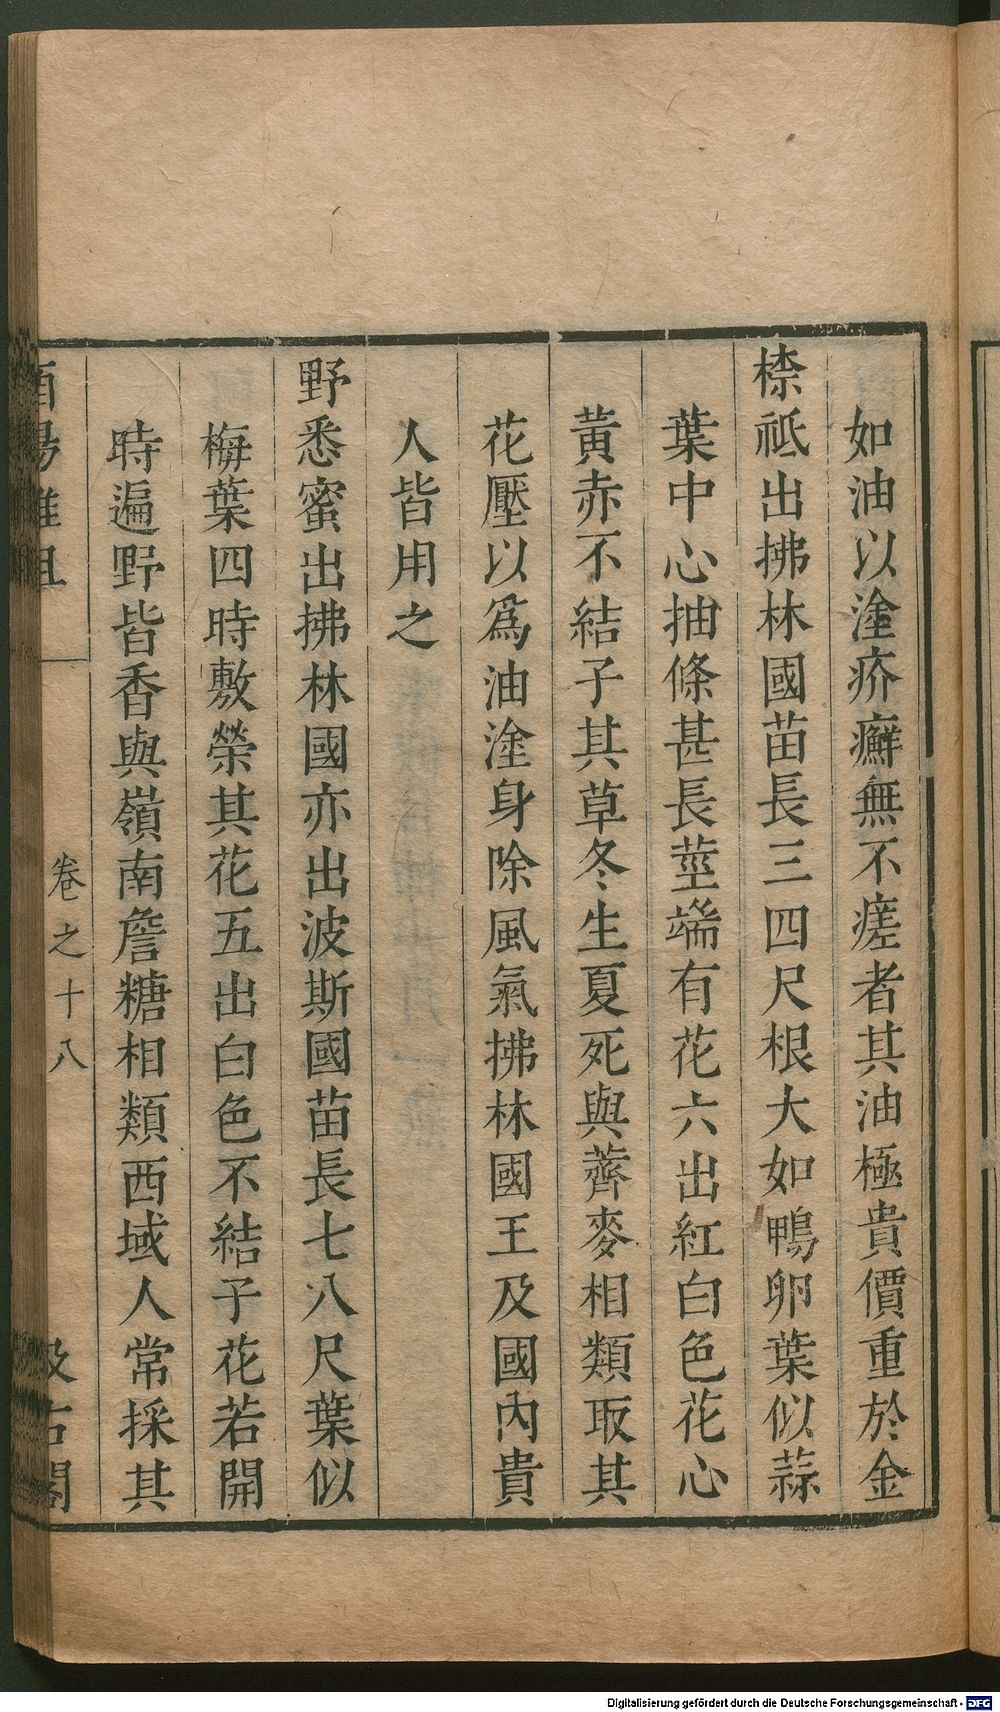 如油以塗疥癬無不瘥者其油極貴價重於金
㮈祗出拂林國苗長三四尺根大如鴨卵葉似蒜
葉中心抽條甚長莖端有花六出紅白色花心
黃赤不結子其草冬生夏死與薺麥相類取其
花壓以爲油塗身除風氣拂林國王及國內貴
人皆用之
野悉蜜出拂林國亦出波斯國苗長七八尺葉似
梅葉四時敷榮其花五出白色不結子花若開
時遍野皆香與嶺南詹糖相類西域人常採其
酉陽雜俎 卷之十八 汲古閣
Digitalisierung gefördert durch die Deutsche Forschungsgemeinschaft - DFG